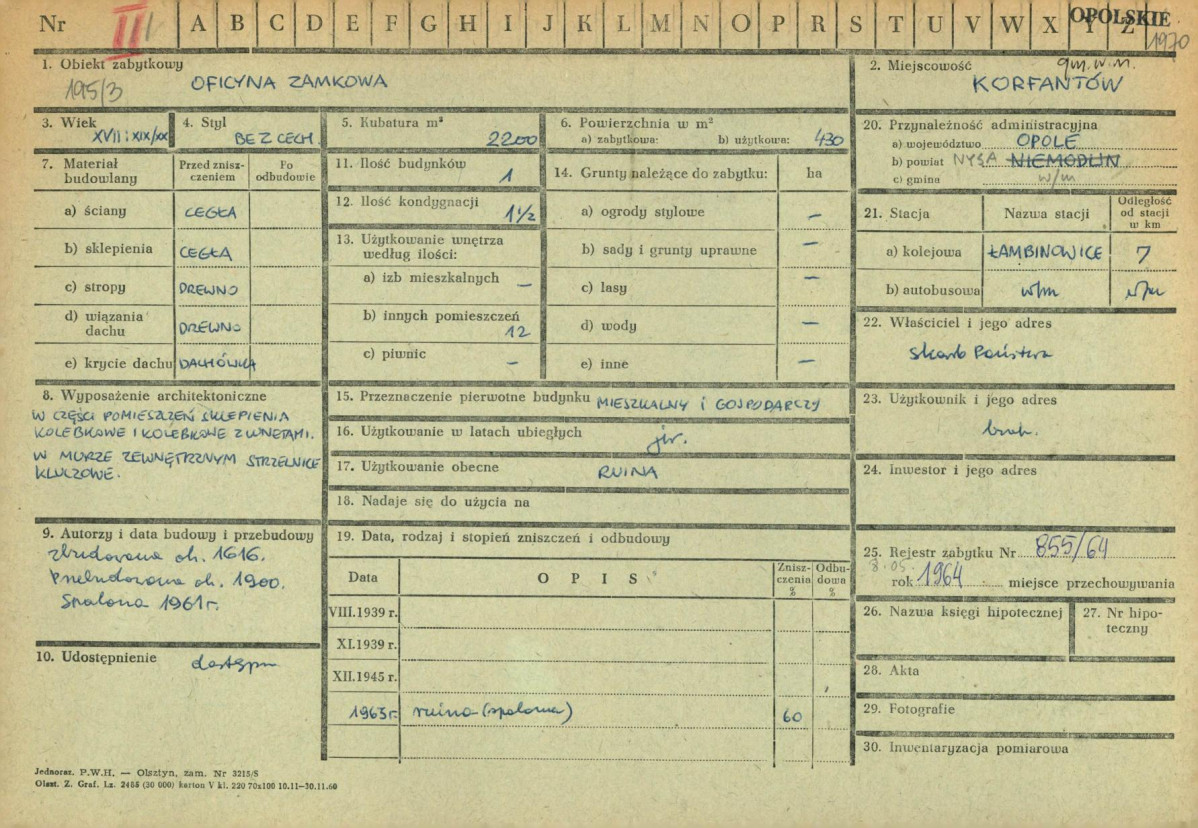 Nr III A B C D E F G H I J K L M N O P R S T U V W X Y Z OPOLSKIE
1970
1. Obiekt zabytkowy
195/3 OFICYNA ZAMKOWA
2. Miejscowość gm. w. m.
KORFANTÓW
3. Wiek
XVII i XIX/XX
4. Styl
BEZ CECH
5. Kubatura m³
2200
6. Powierzchnia w m²
a) zabytkowa: b) użytkowa: 430
7. Materiał budowlany
Przed znisz-
czeniem
Po
odbudowie
a) ściany CEGŁA
b) sklepienia CEGŁA
c) stropy DREWNO
d) wiązania
dachu DREWNO
e) krycie dachu DACHÓWKA
8. Wyposażenie architektoniczne
W CZĘŚCI POMIESZCZEŃ SKLEPIENIA
KOLEBKOWE I KOLEBKOWE Z LUNETAMI.
W MURZE ZEWNĘTRZNYM STRZELNICE
KLUCZOWE.
9. Autorzy i data budowy i przebudowy
zbudowana ok. 1616.
Przebudowana ok. 1900.
Spalona 1961 r.
10. Udostępnienie dostępny
11. Ilość budynków
1
12. Ilość kondygnacji
1½
13. Użytkowanie wnętrza
według ilości:
a) izb mieszkalnych —
b) innych pomieszczeń
12
c) piwnic —
14. Grunty należące do zabytku: ha
a) ogrody stylowe —
b) sady i grunty uprawne —
c) lasy —
d) wody —
e) inne —
15. Przeznaczenie pierwotne budynku MIESZKALNY i GOSPODARCZY
16. Użytkowanie w latach ubiegłych jw.
17. Użytkowanie obecne RUINA
18. Nadaje się do użycia na
19. Data, rodzaj i stopień zniszczeń i odbudowy
Data O P I S Znisz-
czenia
%
Odbu-
dowa
%
VIII.1939 r.
XI.1939 r.
XII.1945 r.
1963 r. ruina (spalona) 60
20. Przynależność administracyjna
a) województwo OPOLE
b) powiat NYSA NIEMODLIN
c) gmina w/m
21. Stacja Nazwa stacji Odległość
od stacji
w km
a) kolejowa ŁAMBINOWICE 7
b) autobusowa w/m w/m
22. Właściciel i jego adres
Skarb Państwa
23. Użytkownik i jego adres
brak.
24. Inwestor i jego adres
25. Rejestr zabytku Nr 855/64
8.05.
rok 1964 miejsce przechowywania
26. Nazwa księgi hipotecznej
27. Nr hipo-
teczny
28. Akta
29. Fotografie
30. Inwentaryzacja pomiarowa
Jednoraz. P.W.H. — Olsztyn, zam. Nr 3215/S
Olszt. Z. Graf. Lz. 2485 (30 000) karton V kl. 220 70x100 10.11—30.11.60